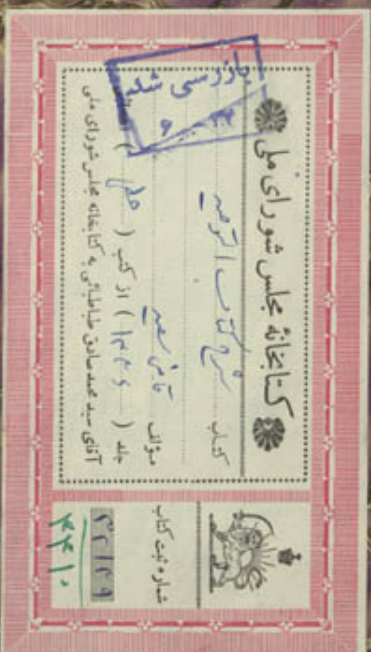 بازرسی شد
کتابخانهٔ مجلس شورای ملی
کتاب شرح کتاب التوحید
مؤلف قاضی سعید
جلد (۱۲۴۶) از کتب (خطی)
آقای سید محمد صادق طباطبائی به کتابخانه مجلس شورای ملی
شماره ثبت کتاب
۳۲۱۴۹